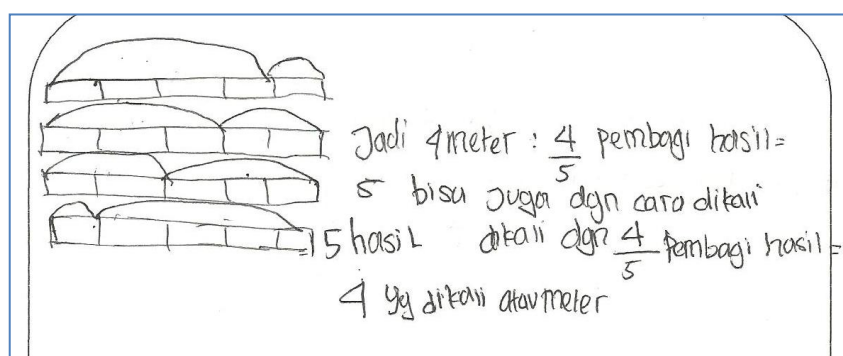 Jadi 4 meter : 4/5 pembagi hasil =
5 bisa juga dgn cara dikali
= 5 hasil dikali dgn 4/5 pembagi hasil =
4 yg dikali atau meter